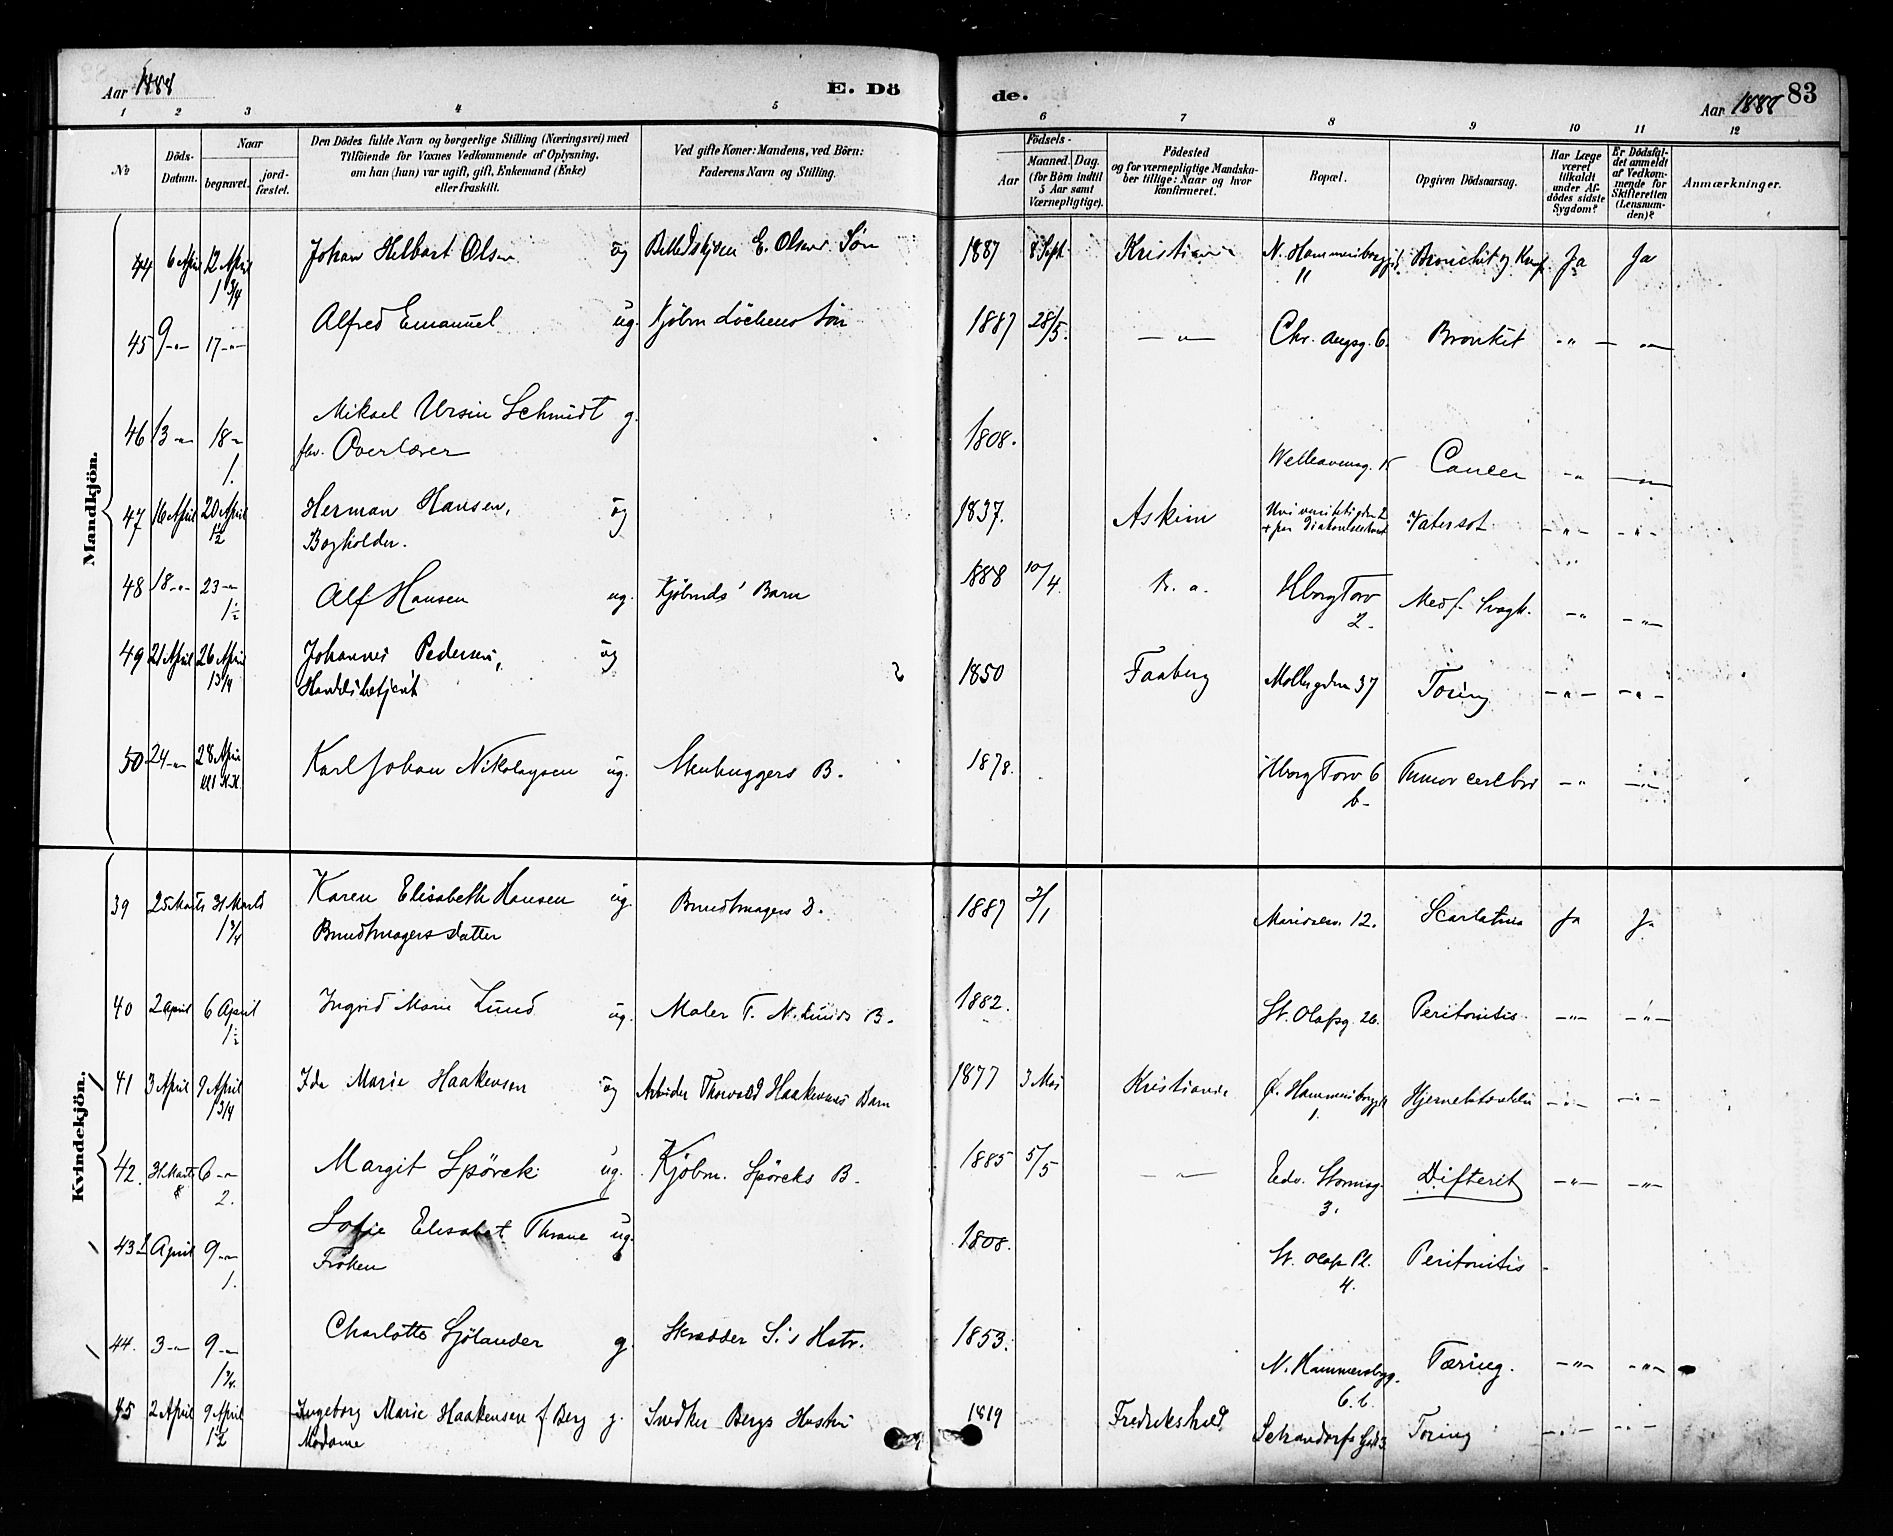 Aar 1888
E. Dö
de.
Aar 1888
83
1 2 3 4 5 6 7 8 9 10 11 12
No
Döds-Datum.
Naar
begravet.
jordfæstet.
Den Dödes fulde Navn og borgerlige Stilling (Næringsvei) med
Tilföiende for Voxnes Vedkommende af Oplysning,
om han (hun) var ugift, gift, Enkemand (Enke)
eller fraskilt.
Ved gifte Koner: Mandens, ved Börn:
Faderens Navn og Stilling.
Födsels-
Aar
Maaned. Dag.
(for Börn indtil
5 Aar samt
Værnepligtige).
Födested
og for værnepligtige Mandskaber tillige: Naar og hvor
konfirmeret.
Bopæl.
Opgiven Dödsaarsag.
Har Læge
været
tilkaldt
under Afdödes sidste
Sygdom?
Er Dödsfaldet anmeldt
af Vedkommende for
Skifteretten
(Lensmanden)?
Anmærkninger.
Mandkjön.
44 6 April 12 April Johan Helbart Olsen ug E. Olsens Sön 1887 8 Sept. Kristiania N. Hammersborgg. Bronchit og Ja Ja
1 3/4 11
45 9 -"- 17 -"- Alfred Emanuel ug. Kjöbm Löchens Sön 1887 28/5. -"- Chr. Augsg. 6. Bronkit -"- -"-
46 13 -"- 18 -"- Mikael Ursin Schmidt g. 1808. 15 Cancer -"- -"-
1. fhv. Overlærer
47 16 April 20 April Herman Hansen, ug 1837. Askim Universitetsgden 2 Vatersot -"- -"-
1 1/2 Bogholder.
48 18 -"- 23 -"- Alf Hansen ug. Kjöbmds' Barn 1888 10/4. Kr. a. Hborg Torv Medf. Svagh. -"- -"-
1 1/2 2.
49 21 April 26 April Johannes Pedersen, ug 1850 Faaberg Mollergden 37 Tæring -"- -"-
1 3/4 Handelsbetjent
50. 24 -"- 28 April Karl Johan Nikolaysen ug. Stenhuggers B. 1878. Hborg Torv 6 Tumor cerebri -"- -"-
b.
Kvindekjön.
39 25 Marts 31 Marts Karen Elisabeth Hansen ug. Bundtmagers D. 1887 2/1 Maridalsv. 12. Scarlatina Ja Ja
1 3/4 Bundtmagers datter
40 2 April 6 April Ingrid Marie Lund ug. Maler T. N. Lunds B. 1882. St. Olafsg. 26. Peritonitis. -"- -"-
1 1/2
41 3 April 9 April Ida Marie Haakensen ug Arbeider Thorvald Haakensens Barn 1877 3 Mai Kristiania Ø. Hammersborgg. -"- -"-
1 3/4 1.
42. 31 Marts 6 -"- Margit Spörck ug. Kjöbm. Spörcks B. 1885 5/5 -"- Edv. Stormsg. Difterit -"- -"-
2. 3.
43 April 9 -"- Sofie Elisabet Thrane ug. 1808. St. Olafs Pl. Peritonitis
1. Fröken 4.
44. 3 -"- 9 -"- Charlotte Sjölander g. Skrædder S.'s Hstr. 1853. N. Hammersbgg. Tæring. -"- -"-
1 3/4. 6. b.
45 2 April 9 April Ingeborg Marie Haakensen f. Berg g. Snedker Bergs Hustru 1819 Fredrikshald Schandorfs Gade 3 Tæring -"- -"-
1 1/2 Madame